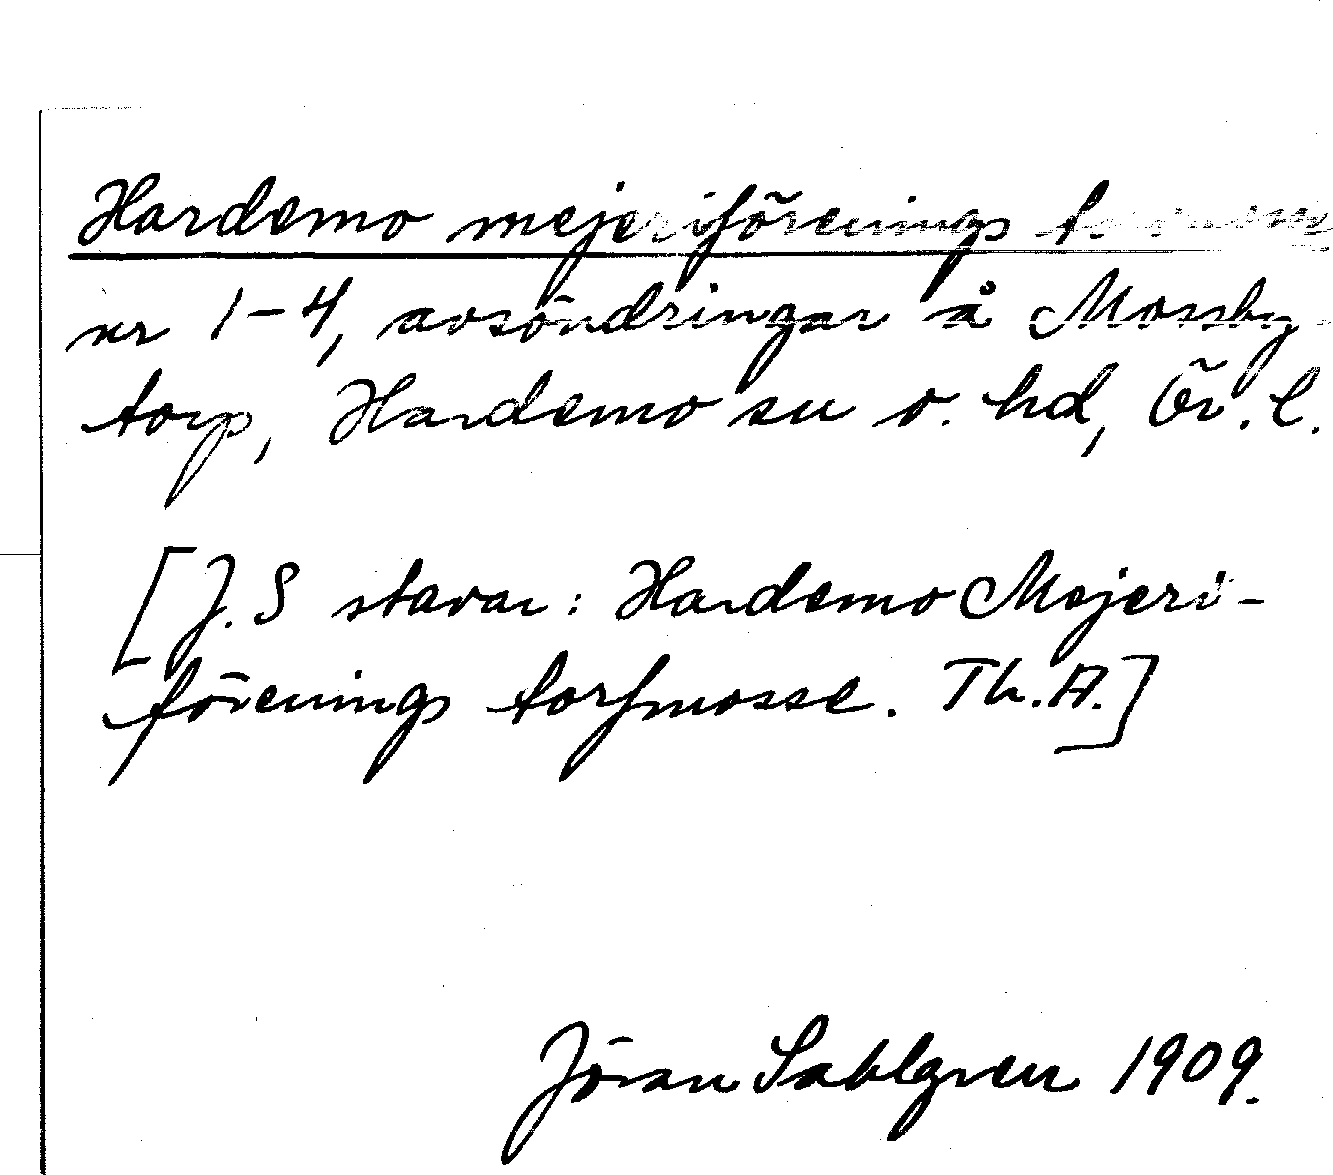 Hardemo mejeriförenings
nr 1-4, avsöndringar å Mossby-
torp, Hardemo sn o. hd, Ör. l.
[J. S stavar: Hardemo Mejeri-
förenings torfmosse. Th. A.]
Jöran Sahlgren 1909.